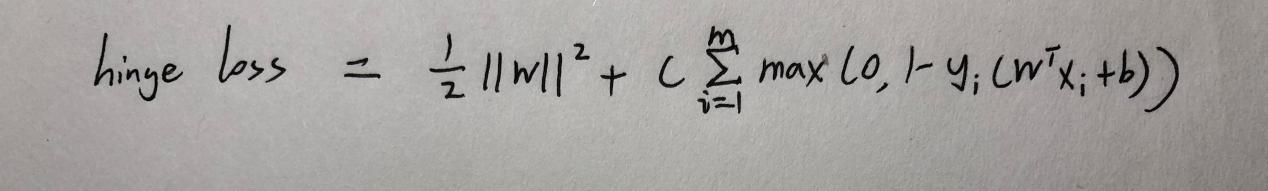 hinge loss = \frac{1}{2} ||w||^2 + C \sum_{i=1}^{m} max(0, 1 - y_i (w^T x_i + b))